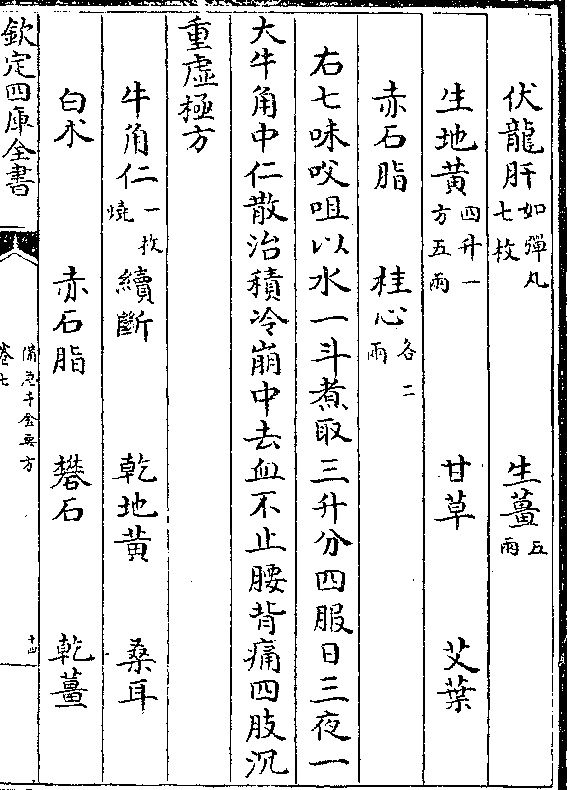 伏龍肝如彈丸七枚　生薑五兩
生地黄四升一方五兩　甘草　艾葉
赤石脂　桂心各二兩
右七味㕮咀以水一斗煮取三升分四服日三夜一
大牛角中仁散治積冷崩中去血不止腰背痛四肢沉
重虛極方
牛角仁一枚燒　續斷　乾地黄　桑耳
白朮　赤石脂　礬石　乾薑
欽定四庫全書　備急千金要方卷七　十四